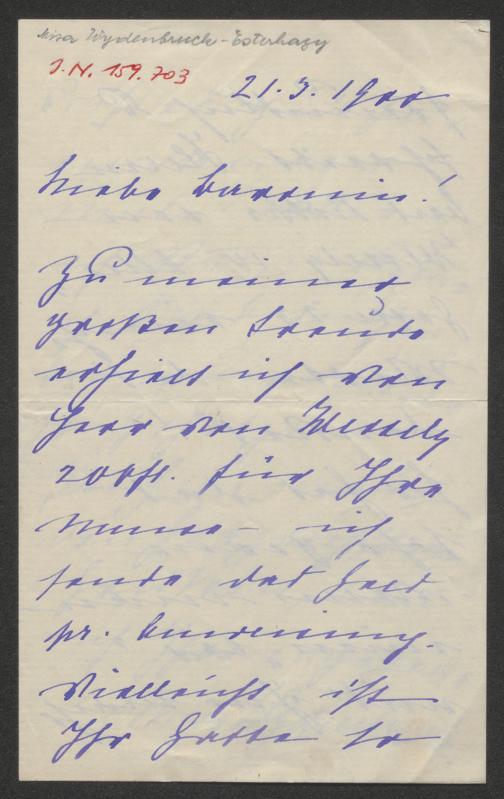 Nisa Wydenbruck-Esterhazy
J.N. 159.703
21.3.1900
Liebe Baronin!
Zu meiner
großen Freude
erhielt ich von
Herr von Wessely
200fl. für Ihre
ich
sende das Geld
pr. Anweisung.
Vielleicht ist
Ihr Gatte so